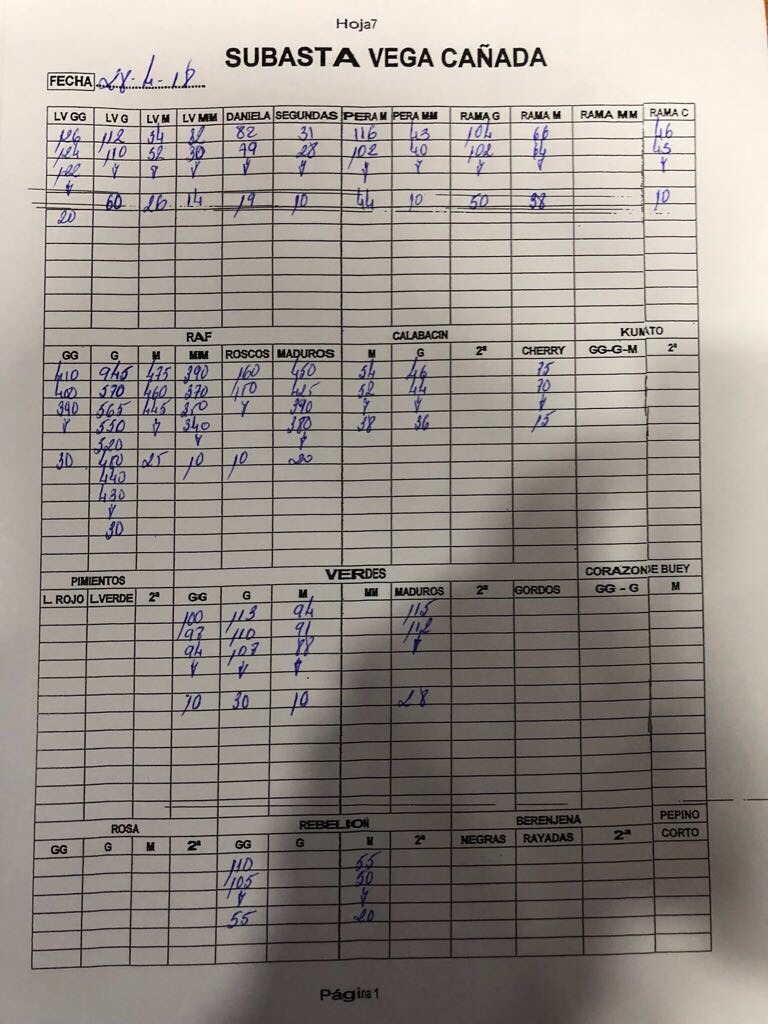 Hoja7
SUBASTA VEGA CAÑADA
FECHA 28-4-18
LV GG LV G LV M LV MM DANIELA SEGUNDAS PERA M PERA MM RAMA G RAMA M RAMA MM RAMA C
126 112 54 32 82 31 116 43 104 66 46
124 110 52 30 79 28 102 40 102 64 45
122
60 26 14 19 10 44 10 50 38 10
20
RAF CALABACIN KUMATO
GG G M MM ROSCOS MADUROS M G 2ª CHERRY GG-G-M 2ª
410 945 475 390 160 450 54 46 75
400 570 460 370 150 425 52 44 70
390 565 445 350 390
550 340 380 38 36 15
520
30 450 25 10 10 20
440
430
30
PIMIENTOS VERDES CORAZON DE BUEY
L. ROJO L.VERDE 2ª GG G M MM MADUROS 2ª GORDOS GG - G M
100 113 94 115
97 110 91 112
94 107 88
10 30 10 28
ROSA REBELION BERENJENA PEPINO
GG G M 2ª GG G M 2ª NEGRAS RAYADAS 2ª CORTO
110 55
105 50
55 20
Página 1